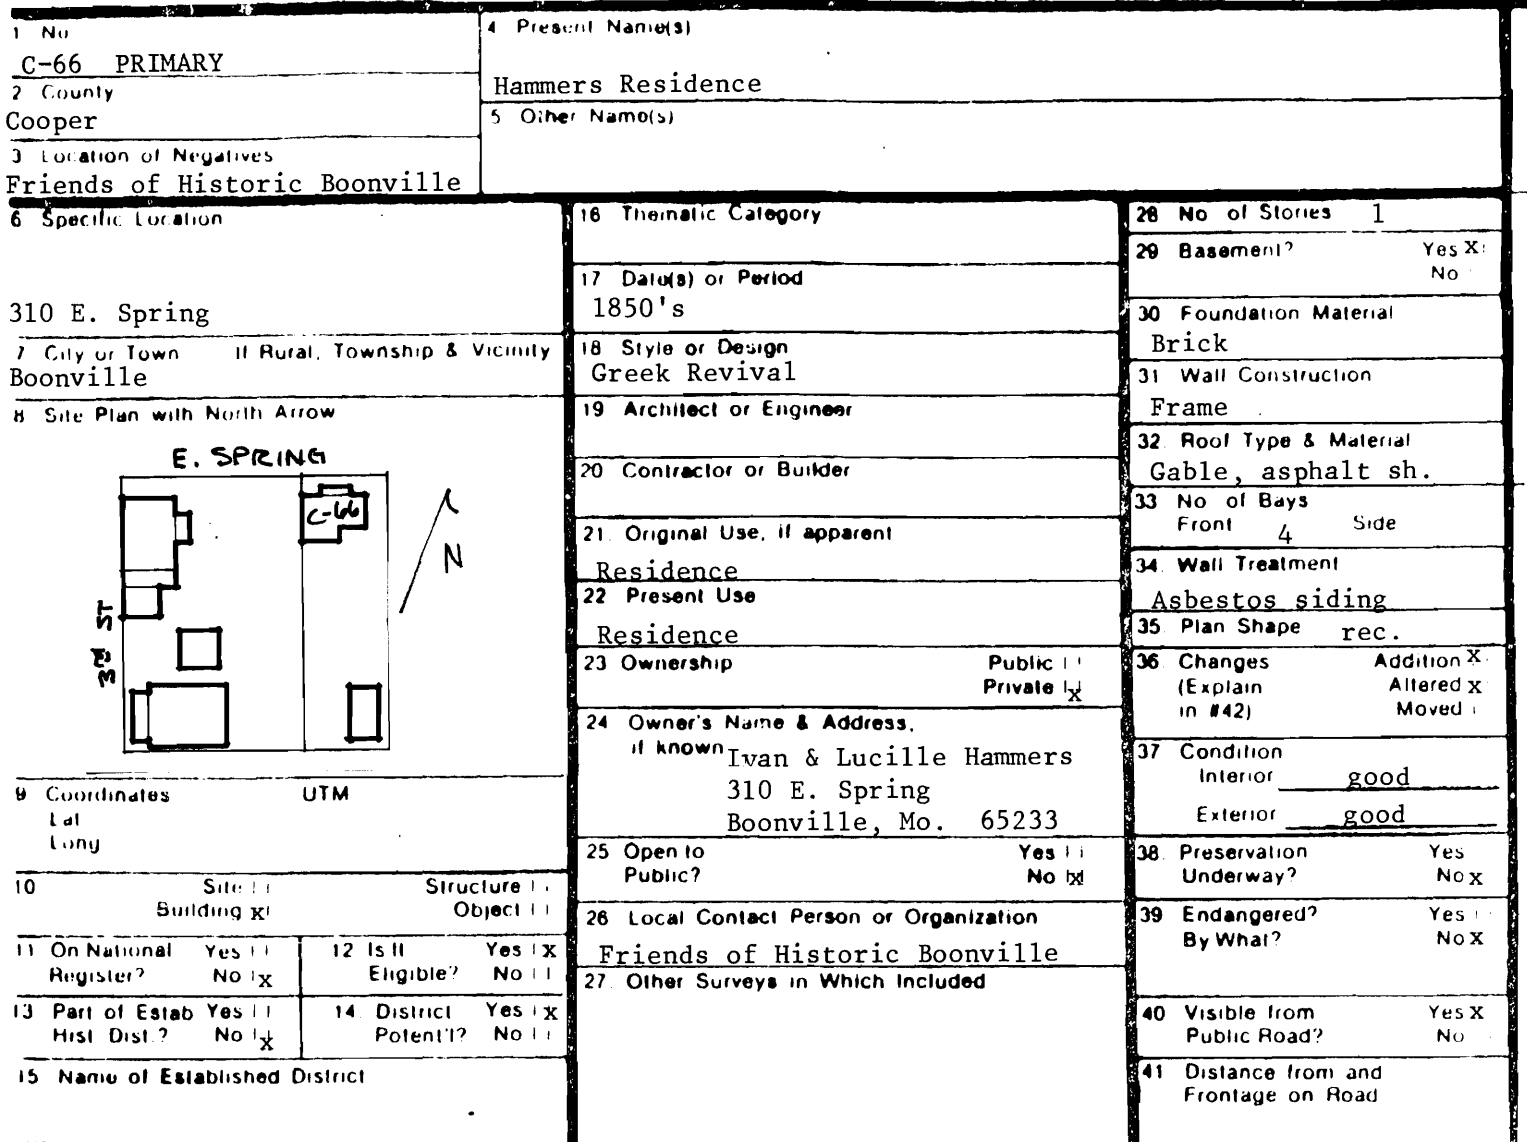 1 No
C-66 PRIMARY
2 County
Cooper
3 Location of Negatives
Friends of Historic Boonville
4 Present Name(s)
Hammers Residence
5 Other Name(s)
6 Specific Location
310 E. Spring
7 City or Town If Rural, Township & Vicinity
Boonville
8 Site Plan with North Arrow
E. SPRING
C-66
N
3RD ST
9 Coordinates UTM
Lat
Long
10 Site Structure
Building x Object
11 On National Yes
Register? No x
12 Is It Yes x
Eligible? No
13 Part of Estab Yes
Hist Dist.? No x
14 District Yes x
Potent'l? No
15 Name of Established District
16 Thematic Category
17 Date(s) or Period
1850's
18 Style or Design
Greek Revival
19 Architect or Engineer
20 Contractor or Builder
21. Original Use, if apparent
Residence
22 Present Use
Residence
23 Ownership Public
Private x
24 Owner's Name & Address,
if known Ivan & Lucille Hammers
310 E. Spring
Boonville, Mo. 65233
25 Open to Yes
Public? No x
26 Local Contact Person or Organization
Friends of Historic Boonville
27. Other Surveys in Which Included
28 No of Stories 1
29 Basement? Yes X
No
30 Foundation Material
Brick
31 Wall Construction
Frame
32. Roof Type & Material
Gable, asphalt sh.
33 No of Bays
Front 4 Side
34. Wall Treatment
Asbestos siding
35. Plan Shape rec.
36 Changes Addition X
(Explain Altered x
in #42) Moved
37 Condition
Interior good
Exterior good
38. Preservation Yes
Underway? No x
39 Endangered? Yes
By What? No X
40 Visible from Yes X
Public Road? No
41 Distance from and
Frontage on Road